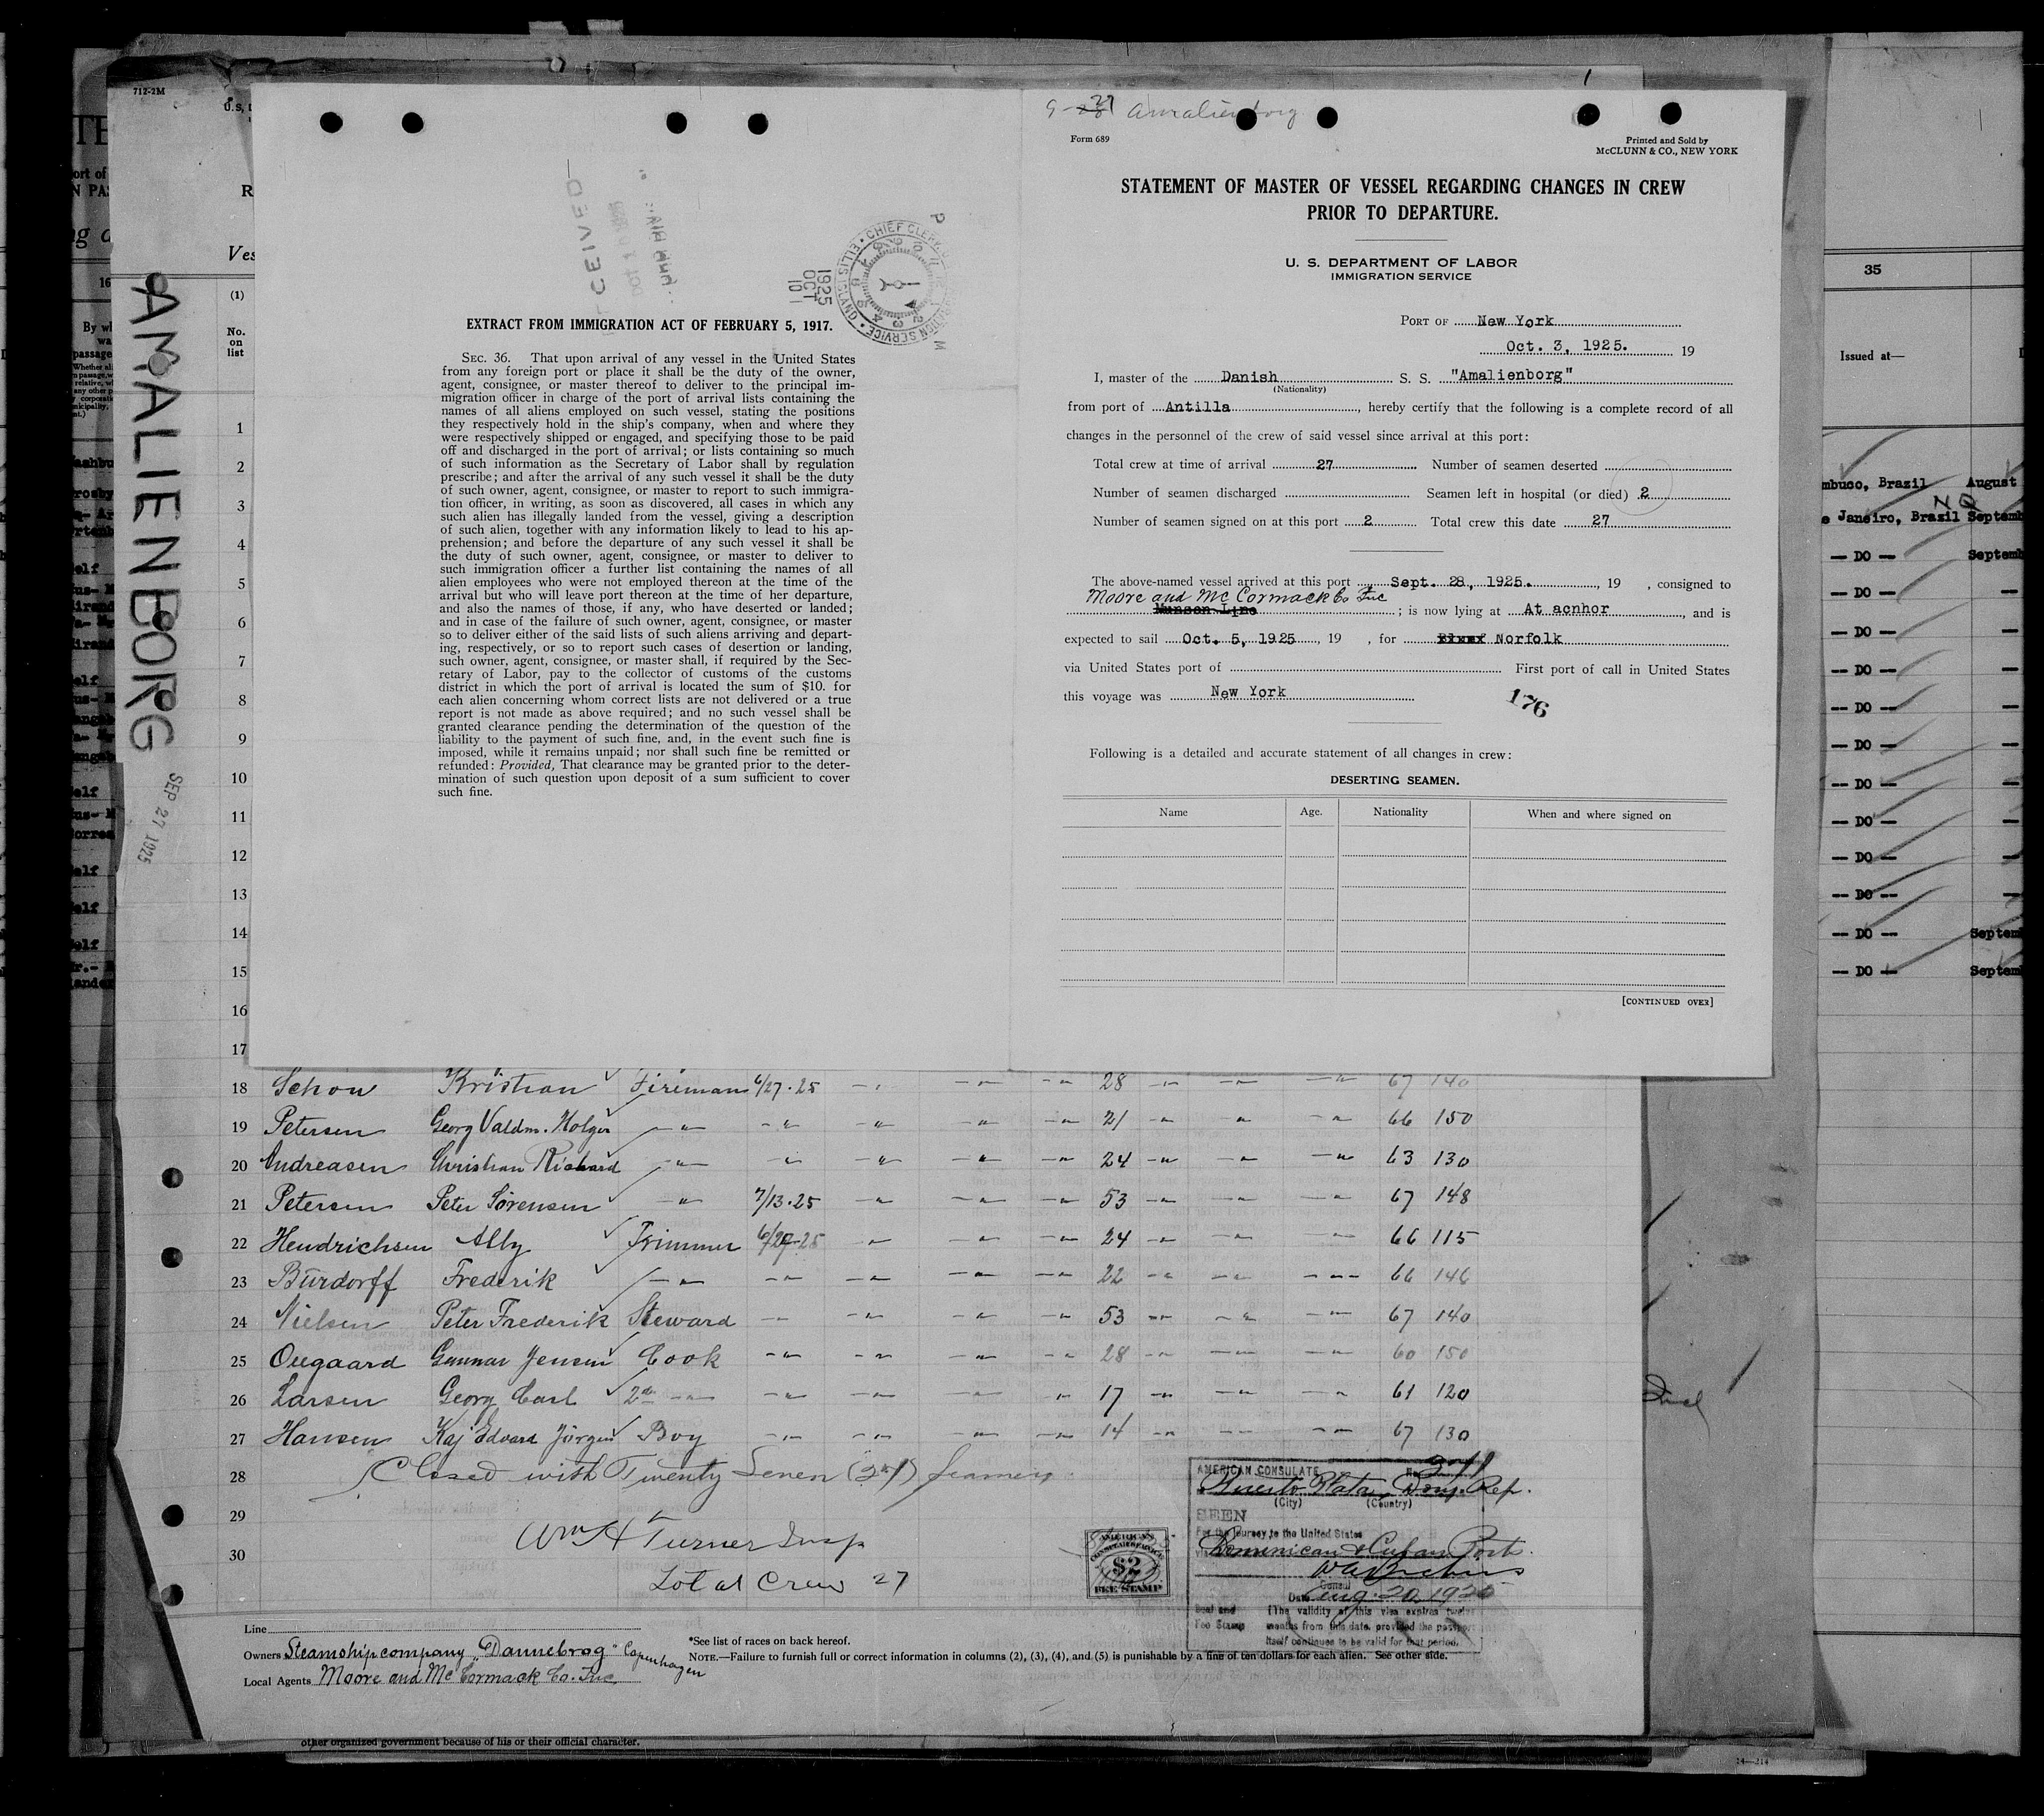 712-2M
AMALIENBORG
SEP 27 1925
(1)
No.
on
list
1
2
3
4
5
6
7
8
9
10
11
12
13
14
15
16
17
EXTRACT FROM IMMIGRATION ACT OF FEBRUARY 5, 1917.
SEC. 36. That upon arrival of any vessel in the United States
from any foreign port or place it shall be the duty of the owner,
agent, consignee, or master thereof to deliver to the principal im-
migration officer in charge of the port of arrival lists containing the
names of all aliens employed on such vessel, stating the positions
they respectively hold in the ship's company, when and where they
were respectively shipped or engaged, and specifying those to be paid
off and discharged in the port of arrival; or lists containing so much
of such information as the Secretary of Labor shall by regulation
prescribe; and after the arrival of any such vessel it shall be the duty
of such owner, agent, consignee, or master to report to such immigra-
tion officer, in writing, as soon as discovered, all cases in which any
such alien has illegally landed from the vessel, giving a description
of such alien, together with any information likely to lead to his ap-
prehension; and before the departure of any such vessel it shall be
the duty of such owner, agent, consignee, or master to deliver to
such immigration officer a further list containing the names of all
alien employees who were not employed thereon at the time of the
arrival but who will leave port thereon at the time of her departure,
and also the names of those, if any, who have deserted or landed;
and in case of the failure of such owner, agent, consignee, or master
so to deliver either of the said lists of such aliens arriving and depart-
ing, respectively, or so to report such cases of desertion or landing,
such owner, agent, consignee, or master shall, if required by the Sec-
retary of Labor, pay to the collector of customs of the customs
district in which the port of arrival is located the sum of $10. for
each alien concerning whom correct lists are not delivered or a true
report is not made as above required; and no such vessel shall be
granted clearance pending the determination of the question of the
liability to the payment of such fine, and, in the event such fine is
imposed, while it remains unpaid; nor shall such fine be remitted or
refunded: Provided, That clearance may be granted prior to the deter-
mination of such question upon deposit of a sum sufficient to cover
such fine.
1925
OCT
10
Amalienborg
Form 689
Printed and Sold by
McCLUNN & CO., NEW YORK
STATEMENT OF MASTER OF VESSEL REGARDING CHANGES IN CREW
PRIOR TO DEPARTURE.
U. S. DEPARTMENT OF LABOR
IMMIGRATION SERVICE
PORT OF New York
Oct. 3, 1925. 19
I, master of the Danish S. S. "Amalienborg"
(Nationality)
from port of Antilla, hereby certify that the following is a complete record of all
changes in the personnel of the crew of said vessel since arrival at this port:
Total crew at time of arrival 27 Number of seamen deserted
Number of seamen discharged Seamen left in hospital (or died) 2
Number of seamen signed on at this port 2 Total crew this date 27
The above-named vessel arrived at this port Sept. 28, 1925. , 19 , consigned to
Moore and Mc Cormack Co Inc
Munson Line ; is now lying at At acnhor, and is
expected to sail Oct. 5, 1925 , 19 , for Norfolk
via United States port of First port of call in United States
this voyage was New York
176
Following is a detailed and accurate statement of all changes in crew:
DESERTING SEAMEN.
Name Age. Nationality When and where signed on
[CONTINUED OVER]
35
Issued at—
mbuco, Brazil August
e Janeiro, Brazil Septemb
— DO — Septemb
— DO —
— DO —
— DO —
— DO —
— DO —
— DO —
— DO —
— DO —
— DO —
— DO — Septem
— DO — Septem
18 Schou Kristian Fireman 6/27-25 28 67 140
19 Petersen Georg Valdm. Holger 21 66 150
20 Andreasen Christian Richard 24 63 130
21 Petersen Peter Sørensen 7/13-25 53 67 148
22 Hendrichsen Alby Trimmer 6/27-25 24 66 115
23 Burdorff Frederik 22 66 146
24 Nielsen Peter Frederik Steward 53 67 140
25 Ougaard Gunnar Jensen Cook 28 60 150
26 Larsen Georg Carl 2d 17 61 120
27 Hansen Kaj Edvard Jörgen Boy 14 67 130
28 Closed with Twenty Seven (27) seamen
29
30
Wm H Turner Insp
Total Crew 27
AMERICAN
CONSULAR SERVICE
$2
FEE STAMP
AMERICAN CONSULATE
Puerto Plata, Dom. Rep.
(City) (Country)
SEEN
For the journey to the United States
Dominican & Cuban Ports.
Consul
Date Aug. 20, 1925
Seal and
Fee Stamp
(The validity of this visa expires twelve
months from this date, provided the passport
itself continues to be valid for that period.
Line
Owners Steamshipcompany „Dannebrog" Copenhagen
Local Agents Moore and Mc Cormack Co. Inc.
*See list of races on back hereof.
NOTE.—Failure to furnish full or correct information in columns (2), (3), (4), and (5) is punishable by a fine of ten dollars for each alien. See other side.
other organized government because of his or their official character.